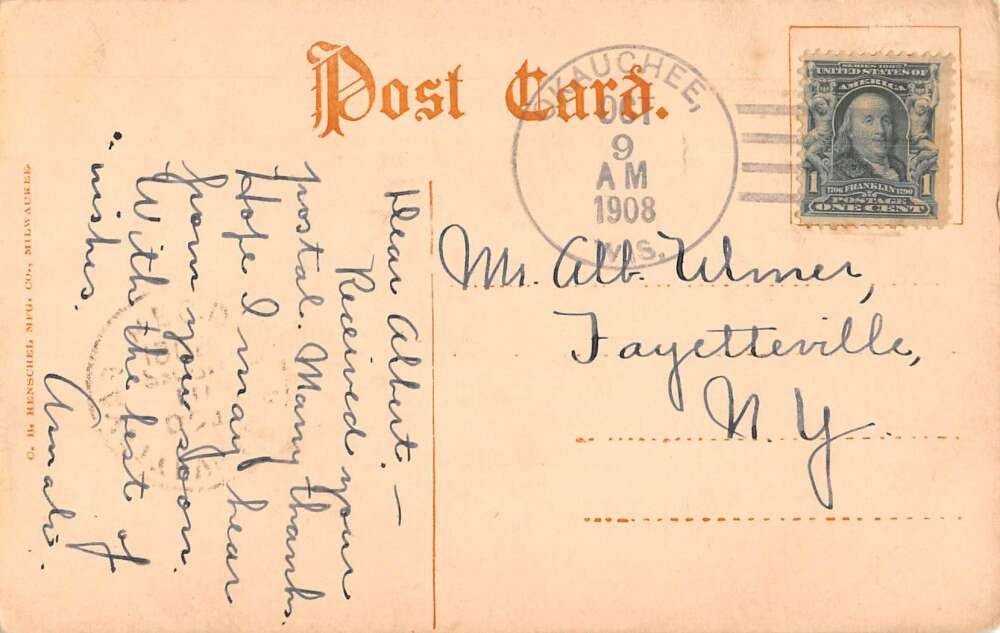 Post Card.
OKAUCHEE,
OCT
9
AM
1908
WIS.
SERIES 1902
UNITED STATES OF
AMERICA
1706 FRANKLIN 1790
1 1
POSTAGE
ONE CENT
Mr. Alb. Ulmer,
Fayetteville,
N. Y.
Dear Albert. —
Received your
postal. Many thanks.
Hope I may hear
from you soon.
With the best of
wishes.
Amali.
C. B. HENSCHEL MFG. CO., MILWAUKEE